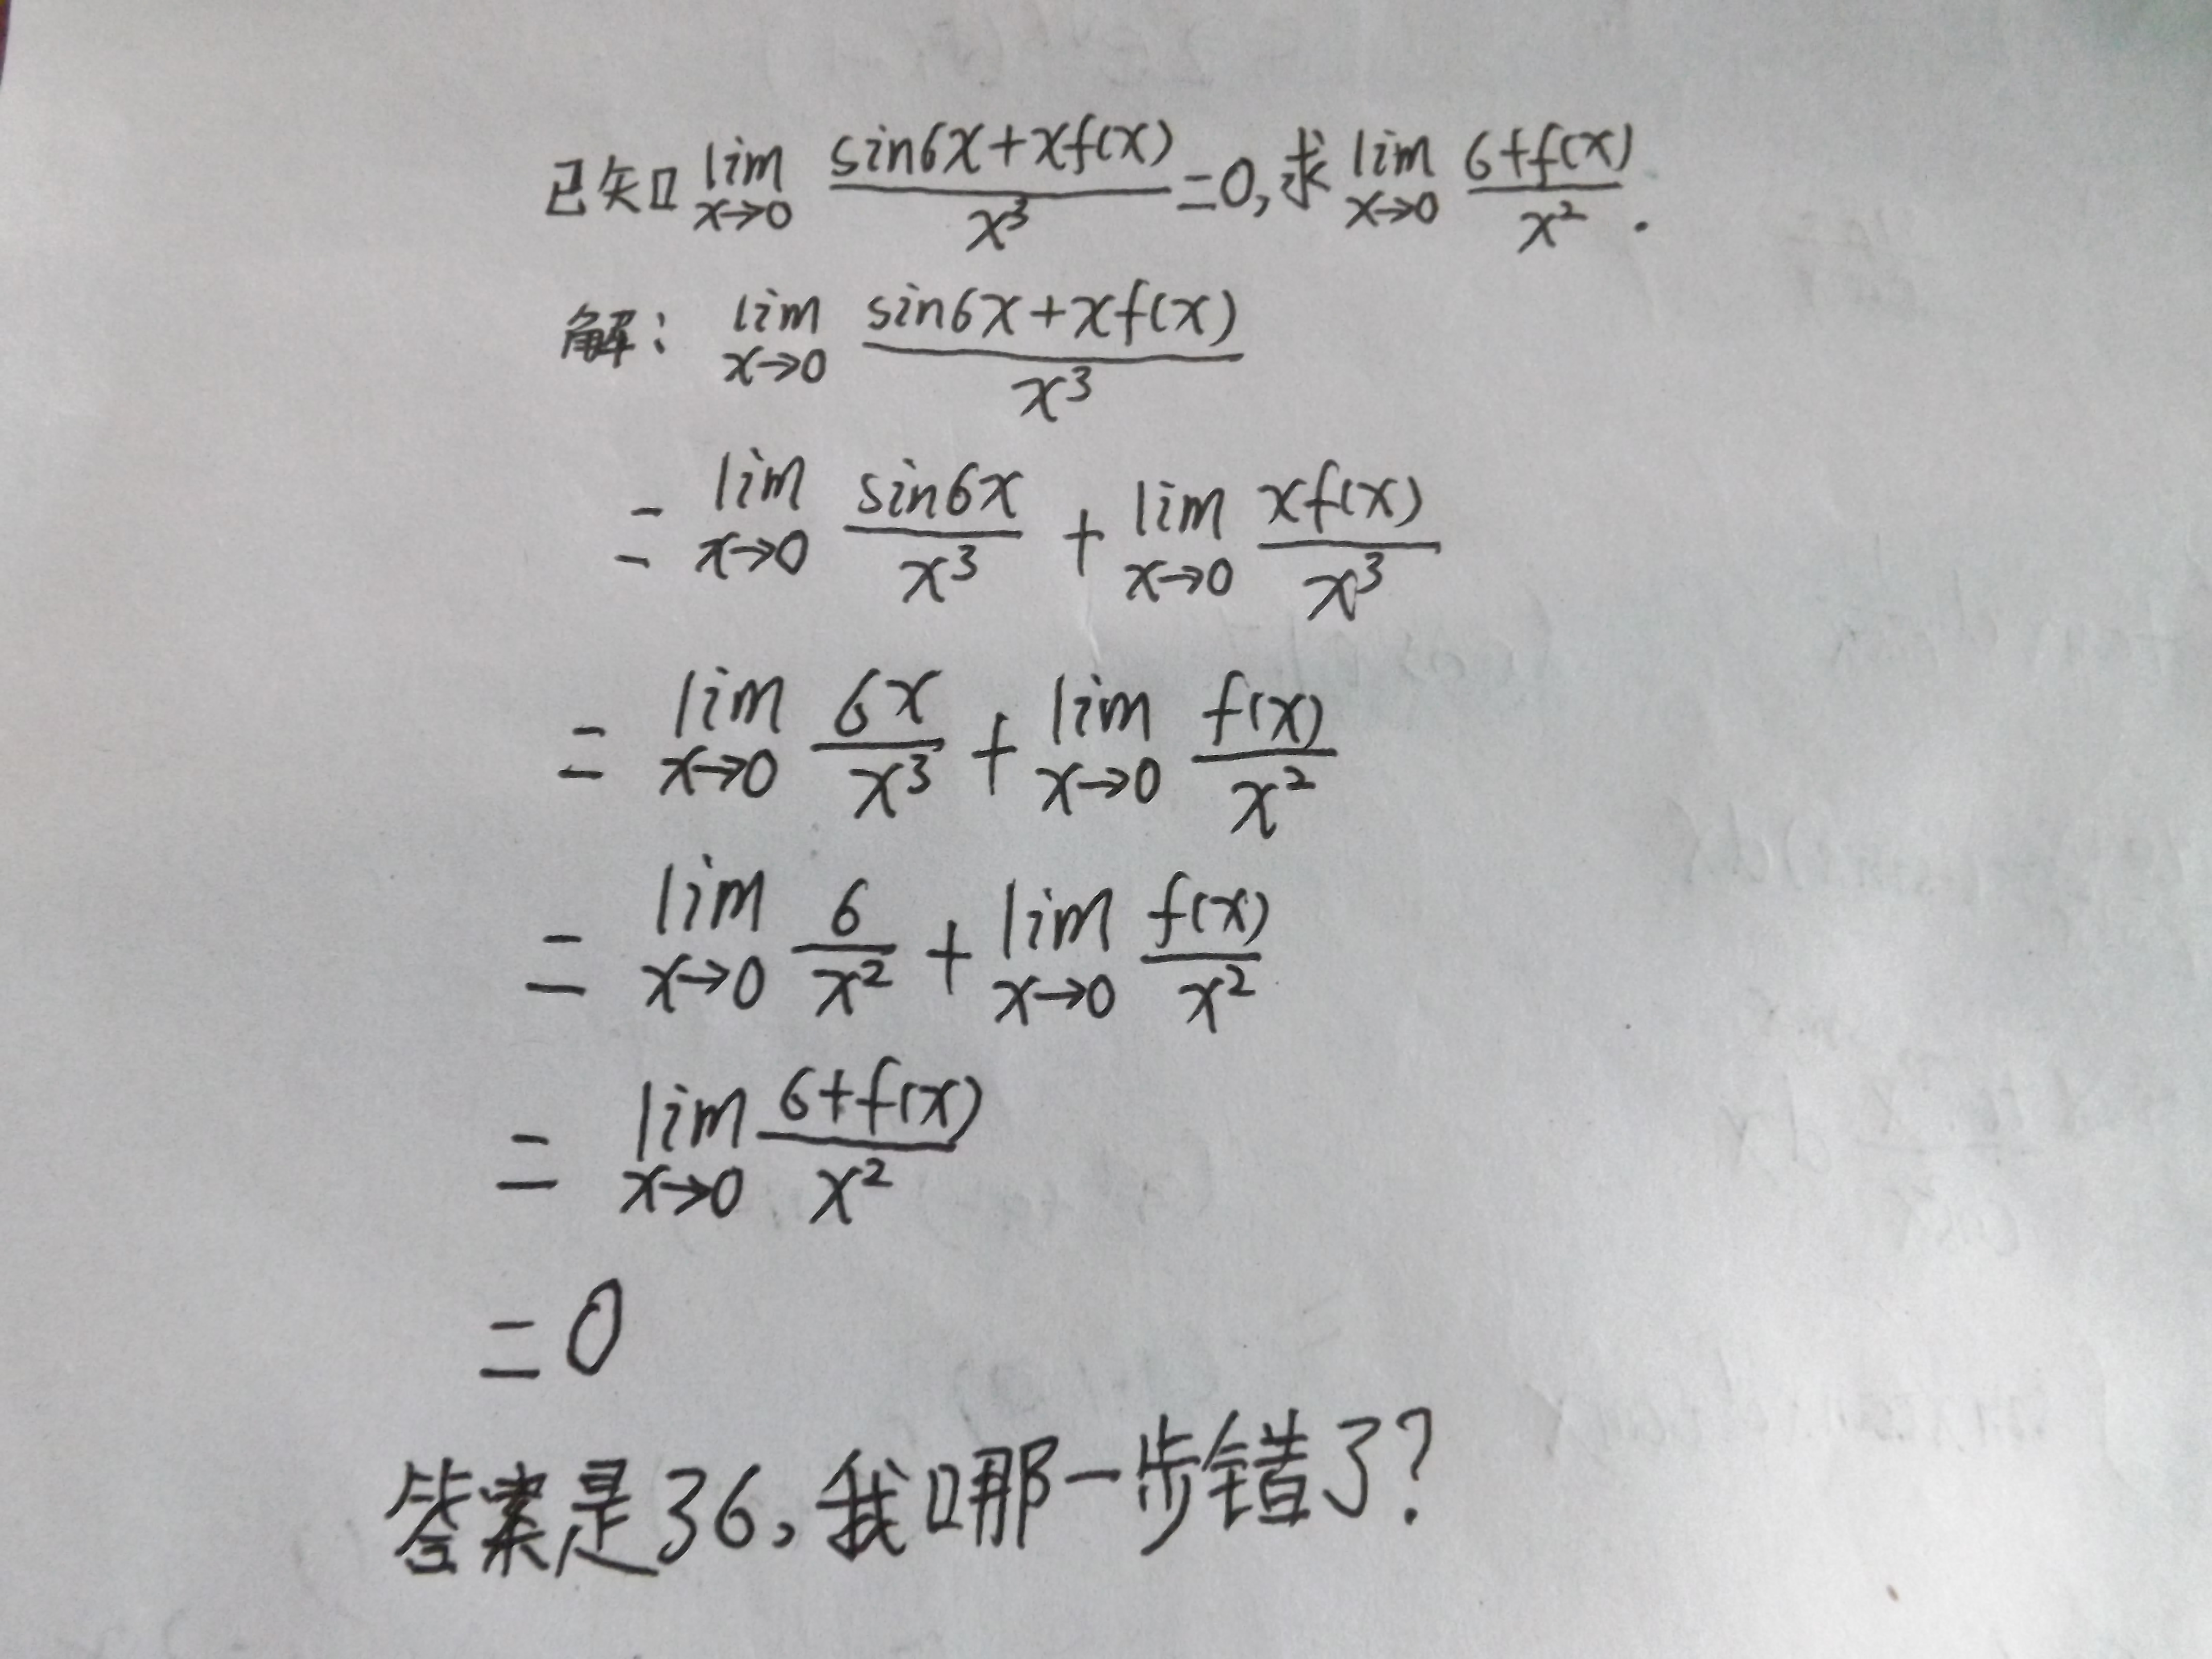 已知 lim x→0 (sin6x+xf(x))/x³ =0, 求 lim x→0 (6+f(x))/x² .
解: lim x→0 (sin6x+xf(x))/x³
= lim x→0 sin6x/x³ + lim x→0 xf(x)/x³
= lim x→0 6x/x³ + lim x→0 f(x)/x²
= lim x→0 6/x² + lim x→0 f(x)/x²
= lim x→0 (6+f(x))/x²
= 0
答案是36,我哪一步错了?